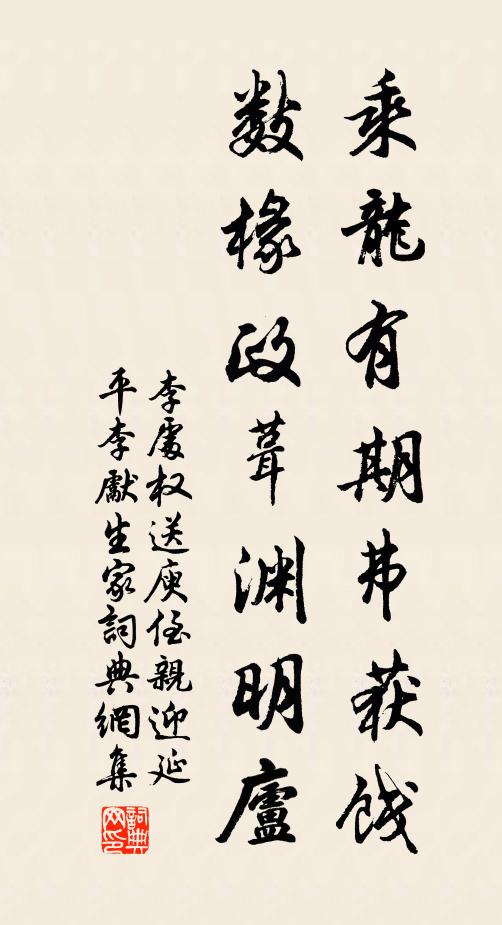 乘龍有期弗获餞
数椽政葺渊明廬
李處权送庾侄親迎延
平李獻生家詞典網集
詞典網印